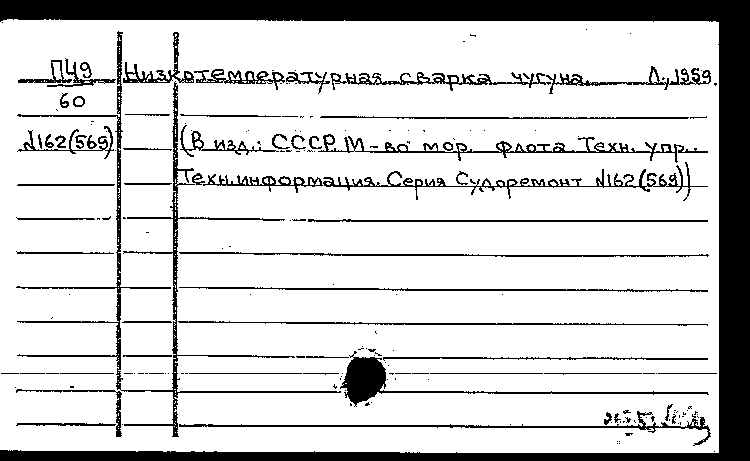 П49 Низкотемпературная сварка чугуна. Л., 1959.
60
№162(569) (В изд.: СССР. М-во мор. флота. Техн. упр..
Техн. информация. Серия Судоремонт №162(569))